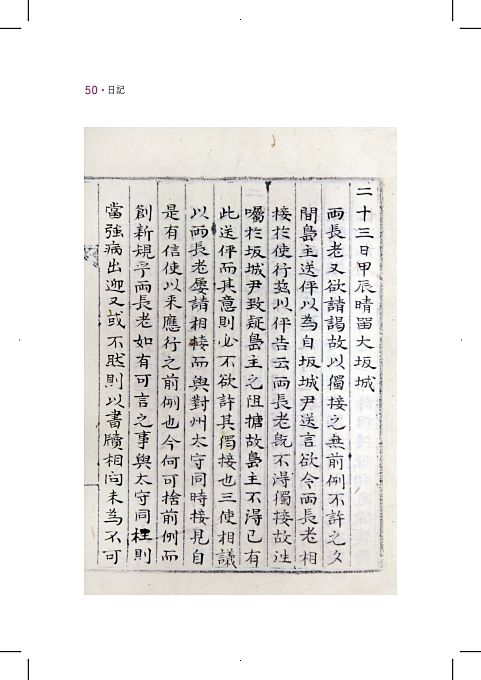 50·日記
二十三日甲辰晴留大坂城
兩長老又欲請謁故以獨接之無前例不許之久
間島主送伻以為自坂城尹送言欲令兩長老相
接於使行玆以伻告云兩長老旣不得獨接故性
囑於坂城尹致疑島主之阻搪故島主不得已有
此送伻而其意則必不欲許其獨接也三使相議
以兩長老屢請相接而與對州太守同時接見自
是有信使以來應行之前例也今何可捨前例而
創新規乎兩長老如有可言之事與太守同枉則
當強病出迎又或不然則以書牘相問未為不可